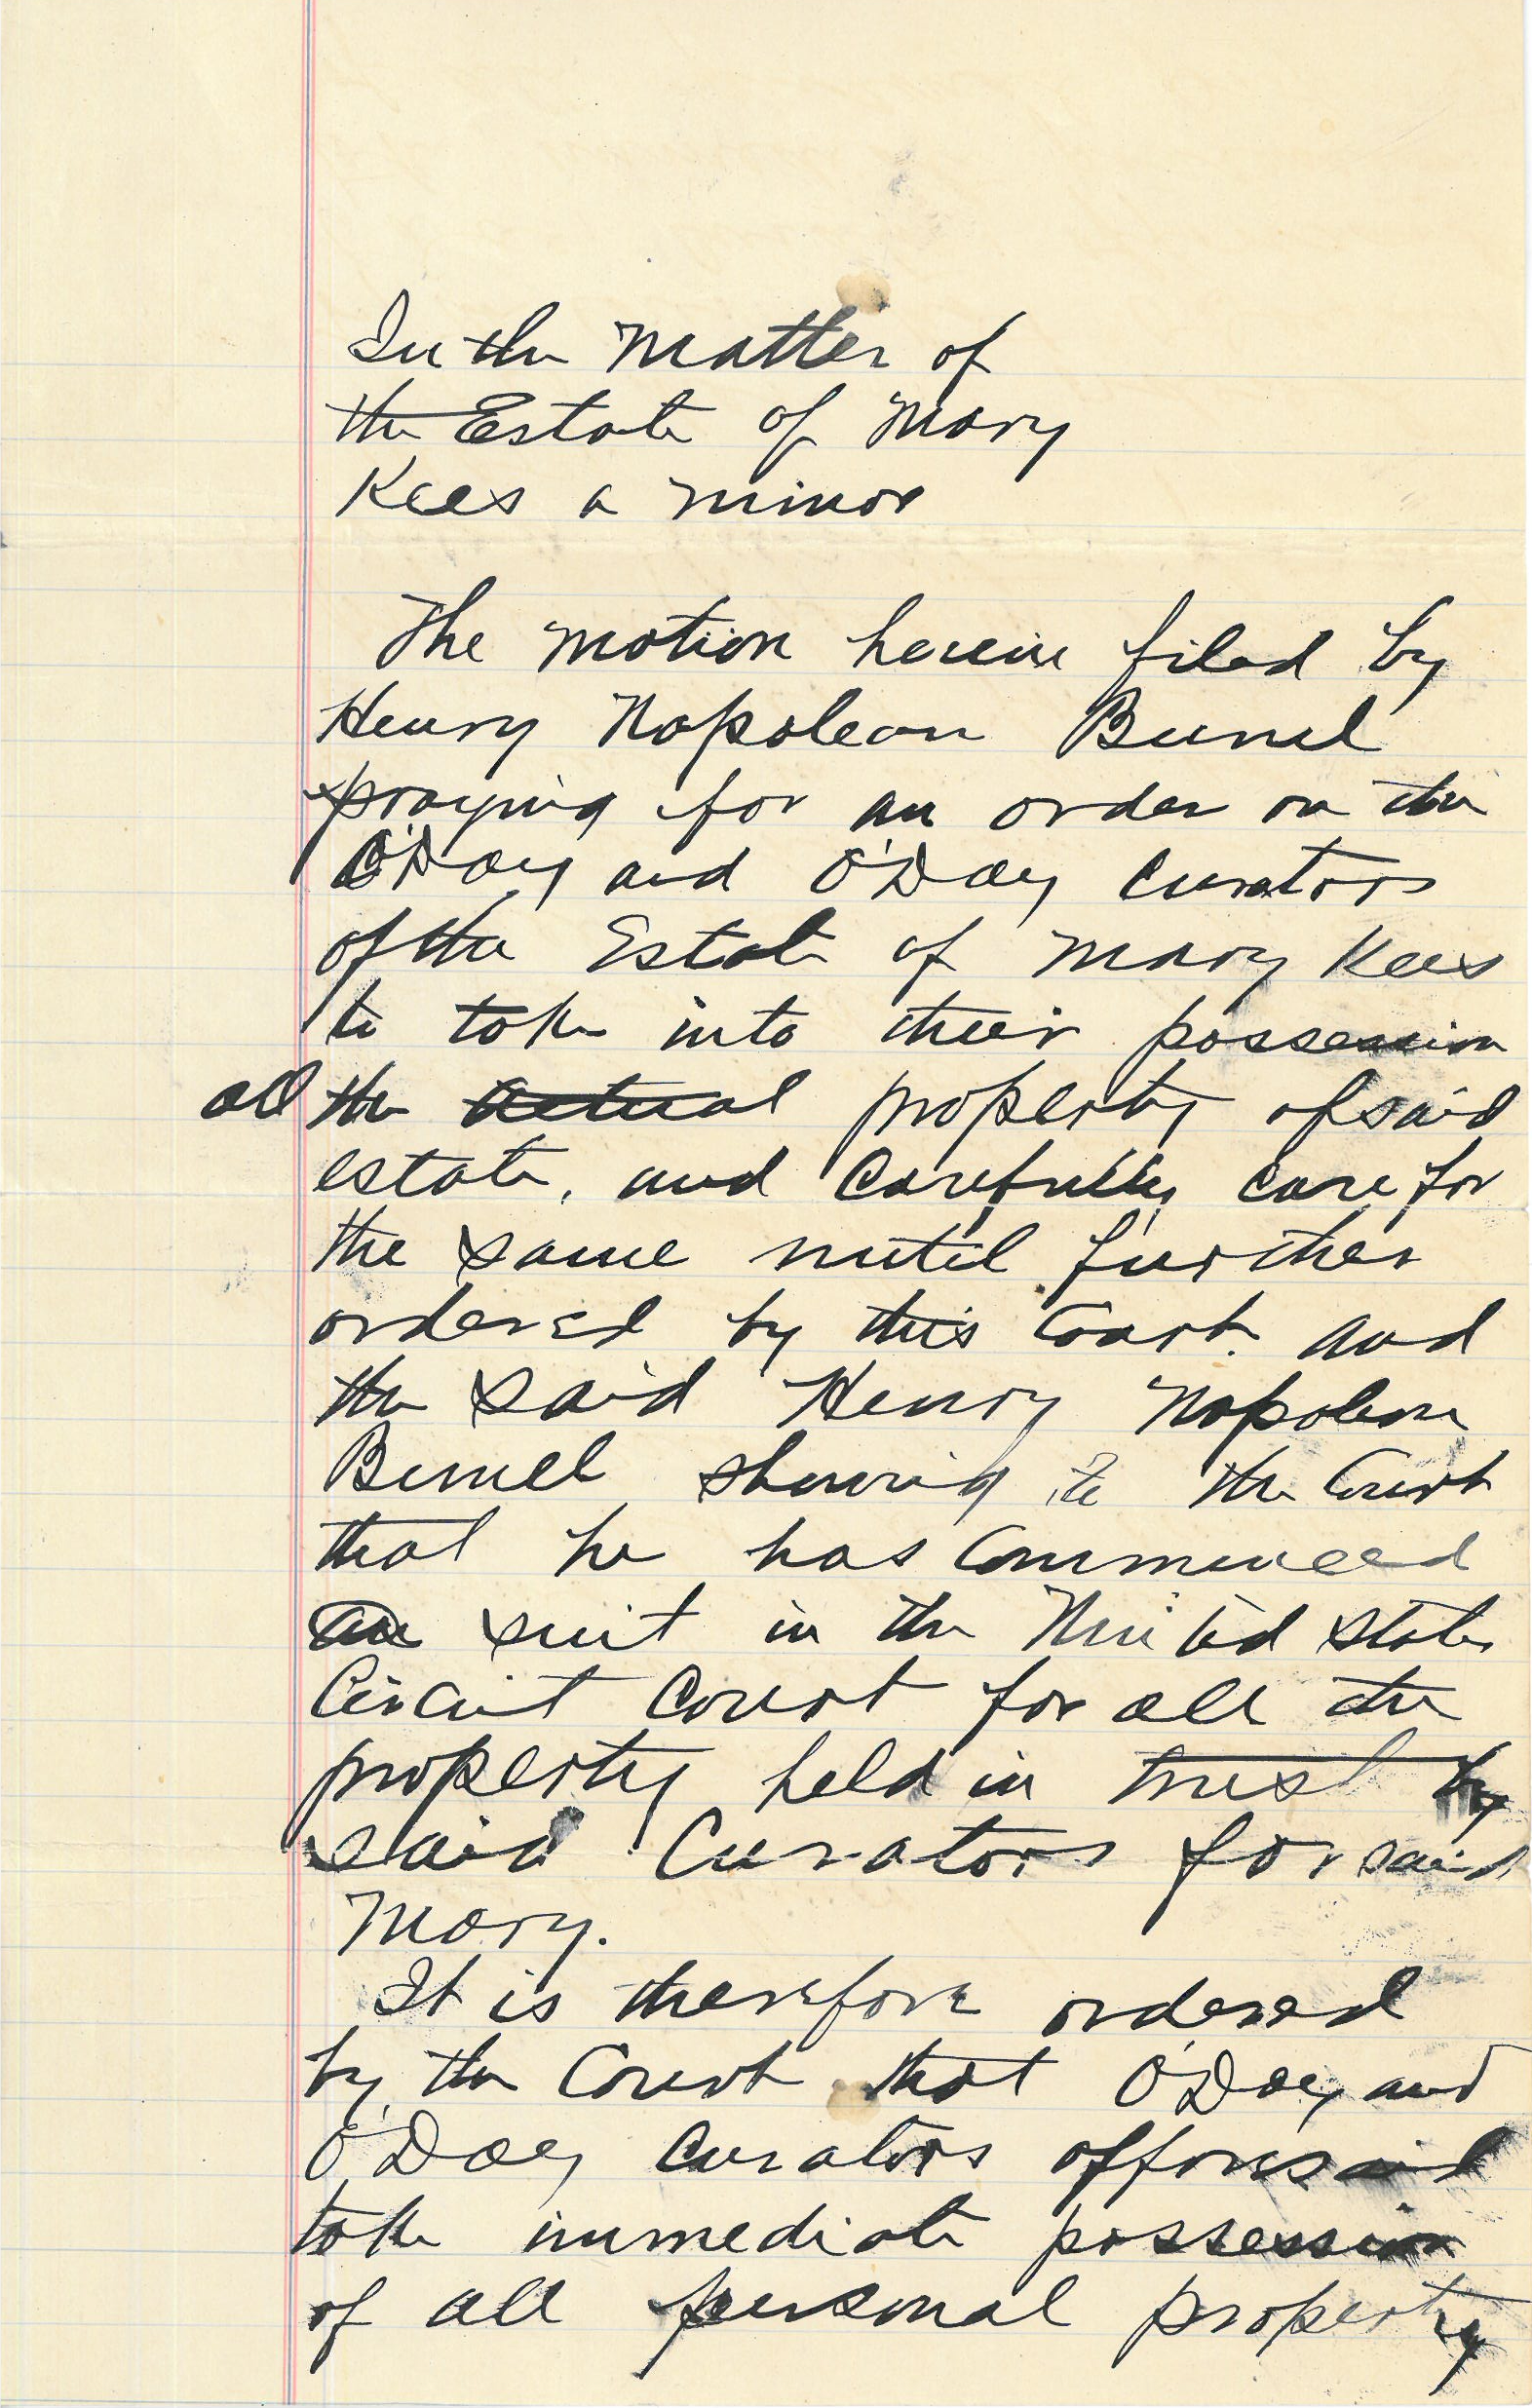 In the Matter of
the Estate of Mary
Kees a minor
The motion herein filed by
Henry Napoleon Bunel
praying for an order on the
O'Day and O'Day curators
of the Estate of Mary Kees
to take into their possession
all the actual property of said
estate, and Carefully care for
the same until further
ordered by this Court. And
the said Henry Napoleon
Bunel showing to the Court
that he has Commenced
suit in the United States
Circuit Court for all the
property held in trust by
said Curators for said
Mary.
It is therefore ordered
by the Court that O'Day and
O'Day Curators afforesaid
take immediate possession
of all personal property